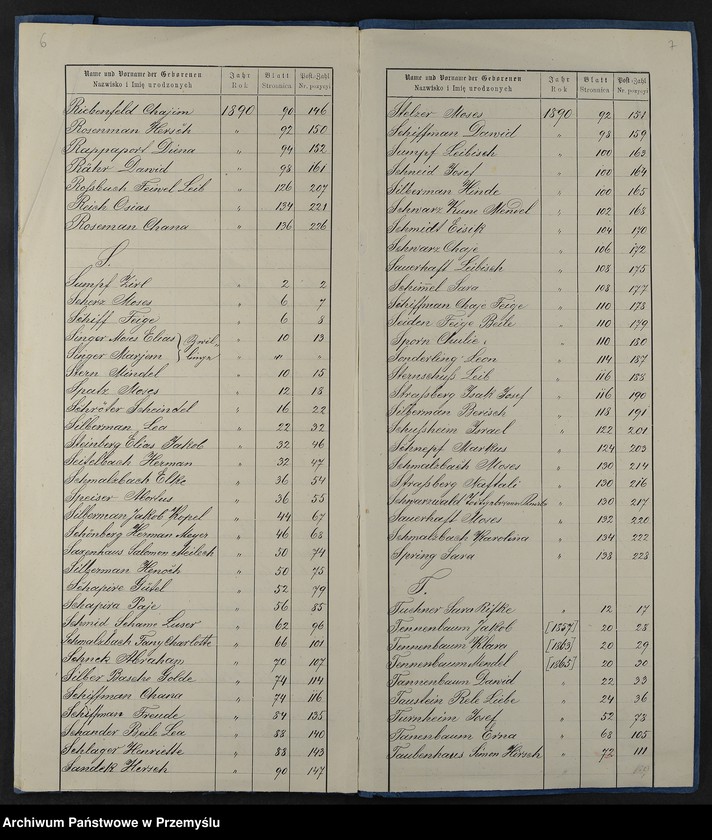 6
Name und Vorname der Geborenen Jahr Blatt Post-Zahl
Nazwisko i Imię urodzonych Rok Stronnica Nr. pozycyi
Riebenfeld Chajem 1890 90 146
Rosenman Hersch " 92 150
Rappaport Diena " 94 152
Räter Dawid " 98 161
Roßbuch Feiwel Leib " 126 207
Reich Osias " 134 221
Roseman Chana " 136 226
S.
Sumpf Zirl " 2 2
Scherz Moses " 6 7
Schiff Feige " 6 8
Singer Moses Elias } Zwil- " 10 13
Singer Marjem } linge " " "
Stern Mendel " 10 15
Spatz Moses " 12 18
Schröter Scheindel " 16 22
Silberman Lea " 22 32
Steinberg Elias Jakob " 32 46
Seifelbach Herman " 32 47
Schmalzbach Elke " 36 54
Speiser Mortus " 36 55
Silberman Jakob Kopel " 44 67
Schönberg Herman Meyer " 46 68
Saxenhaus Salomon Meilech " 50 74
Silberman Henoch " 50 75
Schapire Gütel " 52 79
Schapira Paje " 56 85
Schmid Schame Luser " 62 96
Schmalzbach Fany Charlotte " 66 101
Schnek Abraham " 70 107
Silber Basche Golde " 74 114
Schiffman Chana " 74 116
Schiffman Freude " 84 135
Schander Beile Lea " 88 140
Schlager Henriette " 88 143
Sandek Hersch " 90 147
7
Name und Vorname der Geborenen Jahr Blatt Post-Zahl
Nazwisko i Imię urodzonych Rok Stronnica Nr. pozycyi
Stelzer Moses 1890 92 151
Schiffman Dawid " 98 159
Sumpf Leibisch " 100 163
Schneid Josef " 100 164
Silberman Hinde " 100 165
Schwarz Kune Mendel " 102 168
Schmidt Eisik " 104 170
Schwarz Chaje " 106 172
Sauerhaft Leibisch " 108 175
Schimel Sara " 108 177
Schiffman Chaje Feige " 110 178
Seiden Feige Beile " 110 179
Sporn Chulie " 110 180
Sonderling Leon " 114 187
Sternschuß Leib " 116 188
Straßberg Isak Josef " 116 190
Silberman Berisch " 118 191
Schußheim Israel " 122 201
Schnepf Markus " 124 203
Schmalzbach Moses " 130 214
Straßberg Naftali " 130 216
Schwarzwald " 130 217
Sauerhaft Moses " 132 220
Schmalzbach Karolina " 134 222
Spring Sara " 138 228
T.
Tuchner Sara Rifke " 12 17
Tennenbaum Jakob [1857] 20 28
Tennenbaum Klara [1863] 20 29
Tennenbaum Mendel [1865] 20 30
Tannenbaum Dawid " 22 33
Taustein Rele Liebe " 24 36
Turnheim Josef " 52 78
Tanenbaum Erna " 68 105
Taubenhaus Simon Hirsch " 72 111
Archiwum Państwowe w Przemyślu